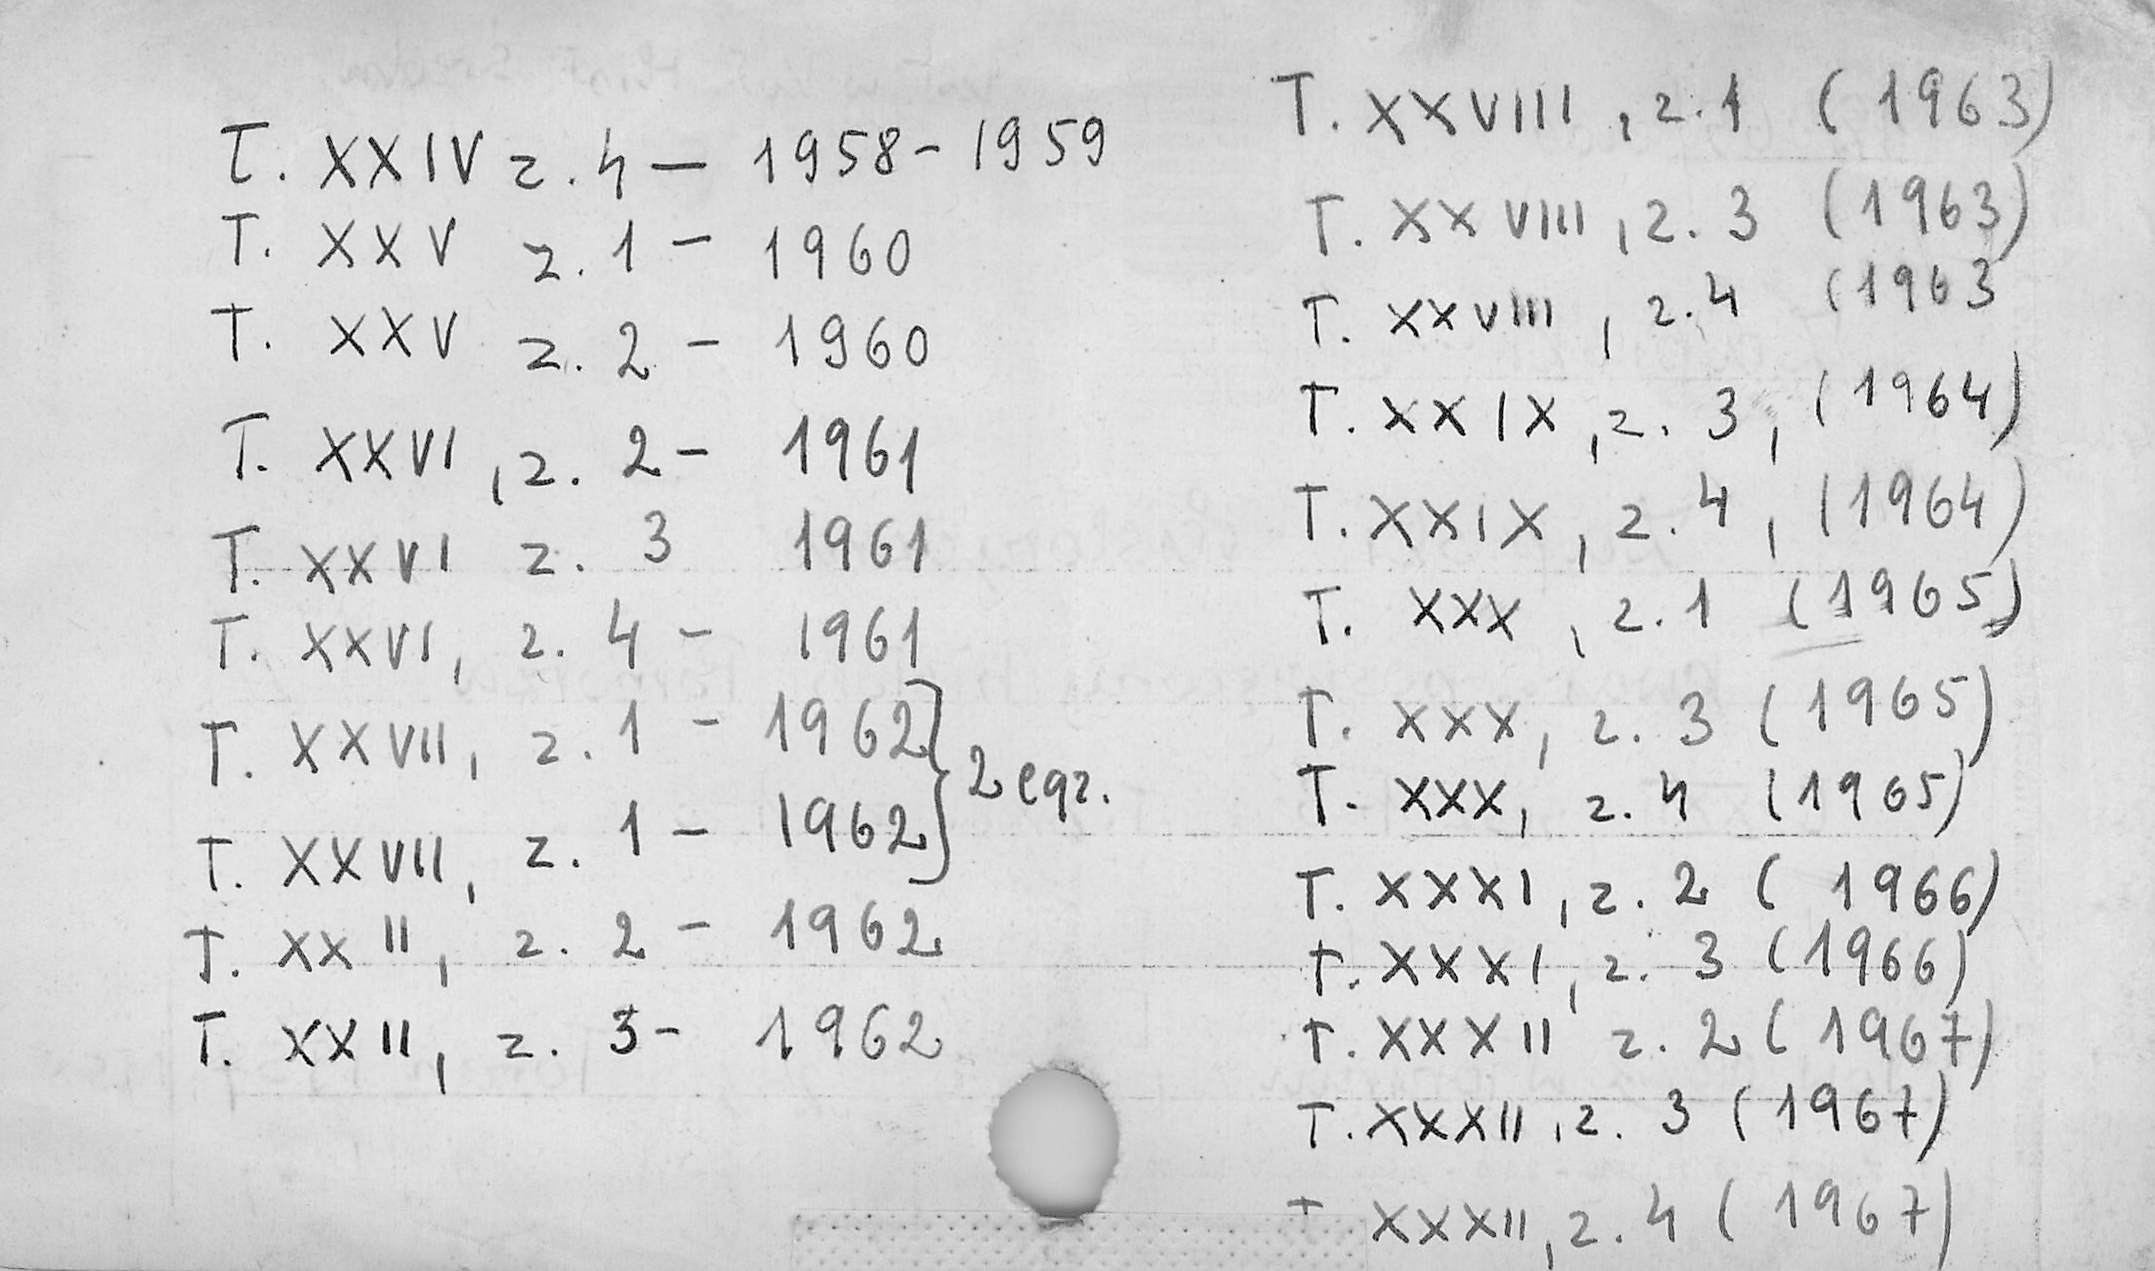 T. XXIV z. 4 - 1958-1959
T. XXV z. 1 - 1960
T. XXV z. 2 - 1960
T. XXVI, z. 2 - 1961
T. XXVI z. 3 1961
T. XXVI, z. 4 - 1961
T. XXVII, z. 1 - 1962
T. XXVII, z. 1 - 1962 } 2 egz.
T. XXII, z. 2 - 1962
T. XXII, z. 3 - 1962
T. XXVIII, z. 1 (1963)
T. XXVIII, z. 3 (1963)
T. XXVIII, z. 4 (1963
T. XXIX, z. 3, (1964)
T. XXIX, z. 4, (1964)
T. XXX, z. 1 (1965)
T. XXX, z. 3 (1965)
T. XXX, z. 4 (1965)
T. XXXI, z. 2 (1966)
T. XXXI, z. 3 (1966)
T. XXXII z. 2 (1967)
T. XXXII, z. 3 (1967)
T XXXII, z. 4 (1967)